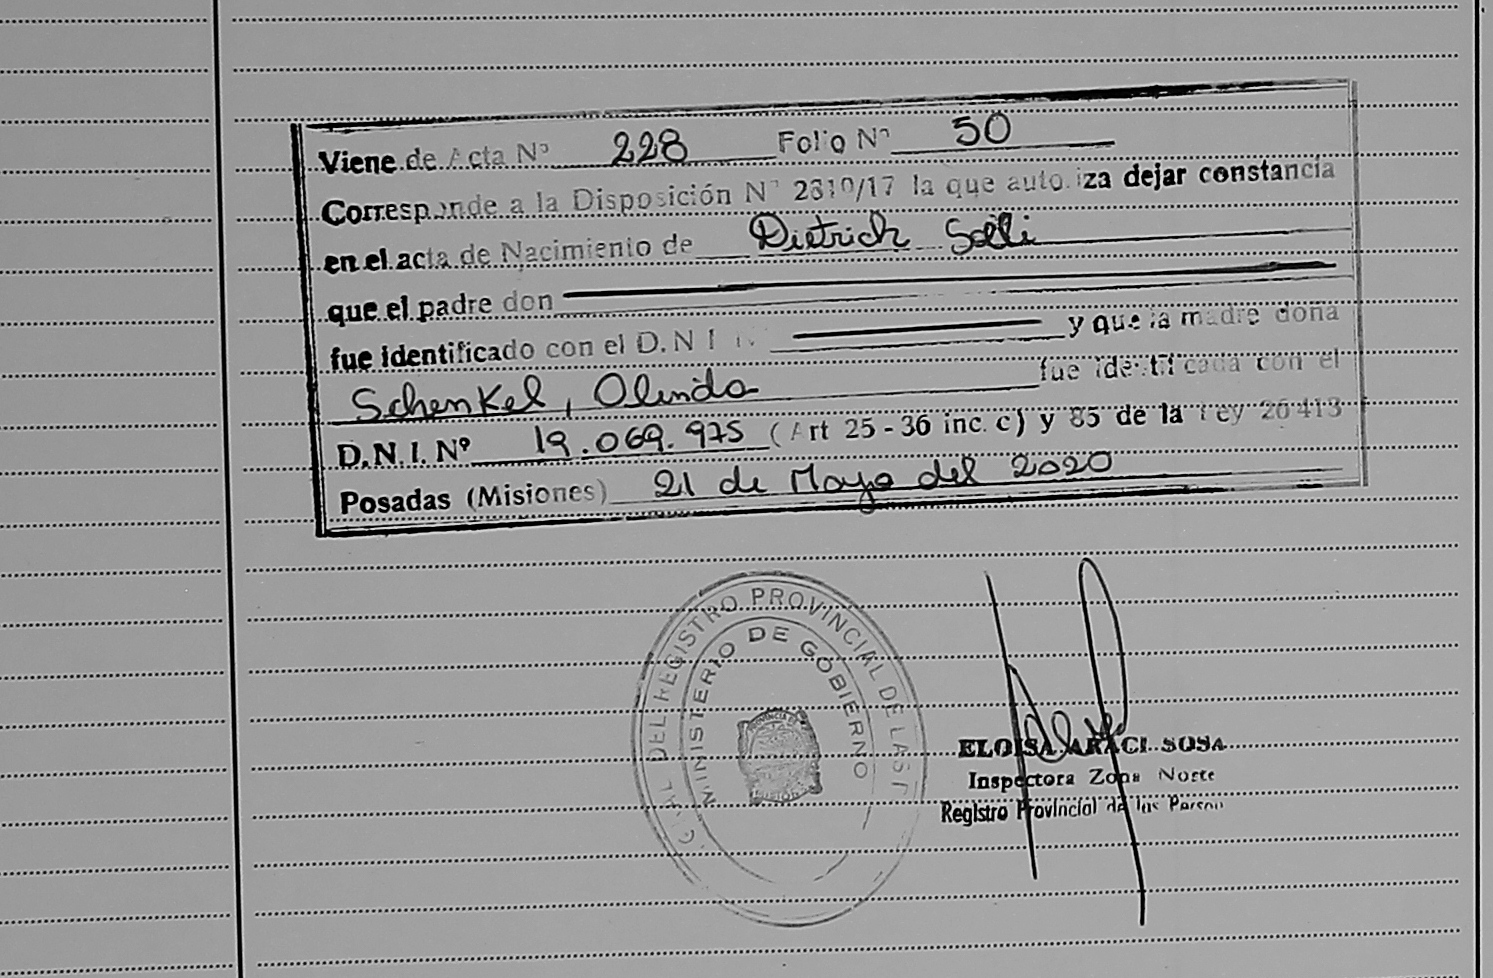 Viene de Acta Nº 228 Folio Nº 50
Corresponde a la Disposición Nº 2310/17 la que autoriza dejar constancia
en el acta de Nacimiento de Dietrich Selli
que el padre don
fue identificado con el D.N.I. y que la madre doña
Schenkel, Olinda fue identificada con el
D.N.I. Nº 19.069.975 (Art 25 - 36 inc. c) y 85 de la Ley 26413
Posadas (Misiones) 21 de Mayo del 2020
DEL REGISTRO PROVINCIAL DE LAS P
MINISTERIO DE GOBIERNO
PROVINCIA DE
MISIONES
ELOISA ARACI SOSA
Inspectora Zona Norte
Registro Provincial de las Person